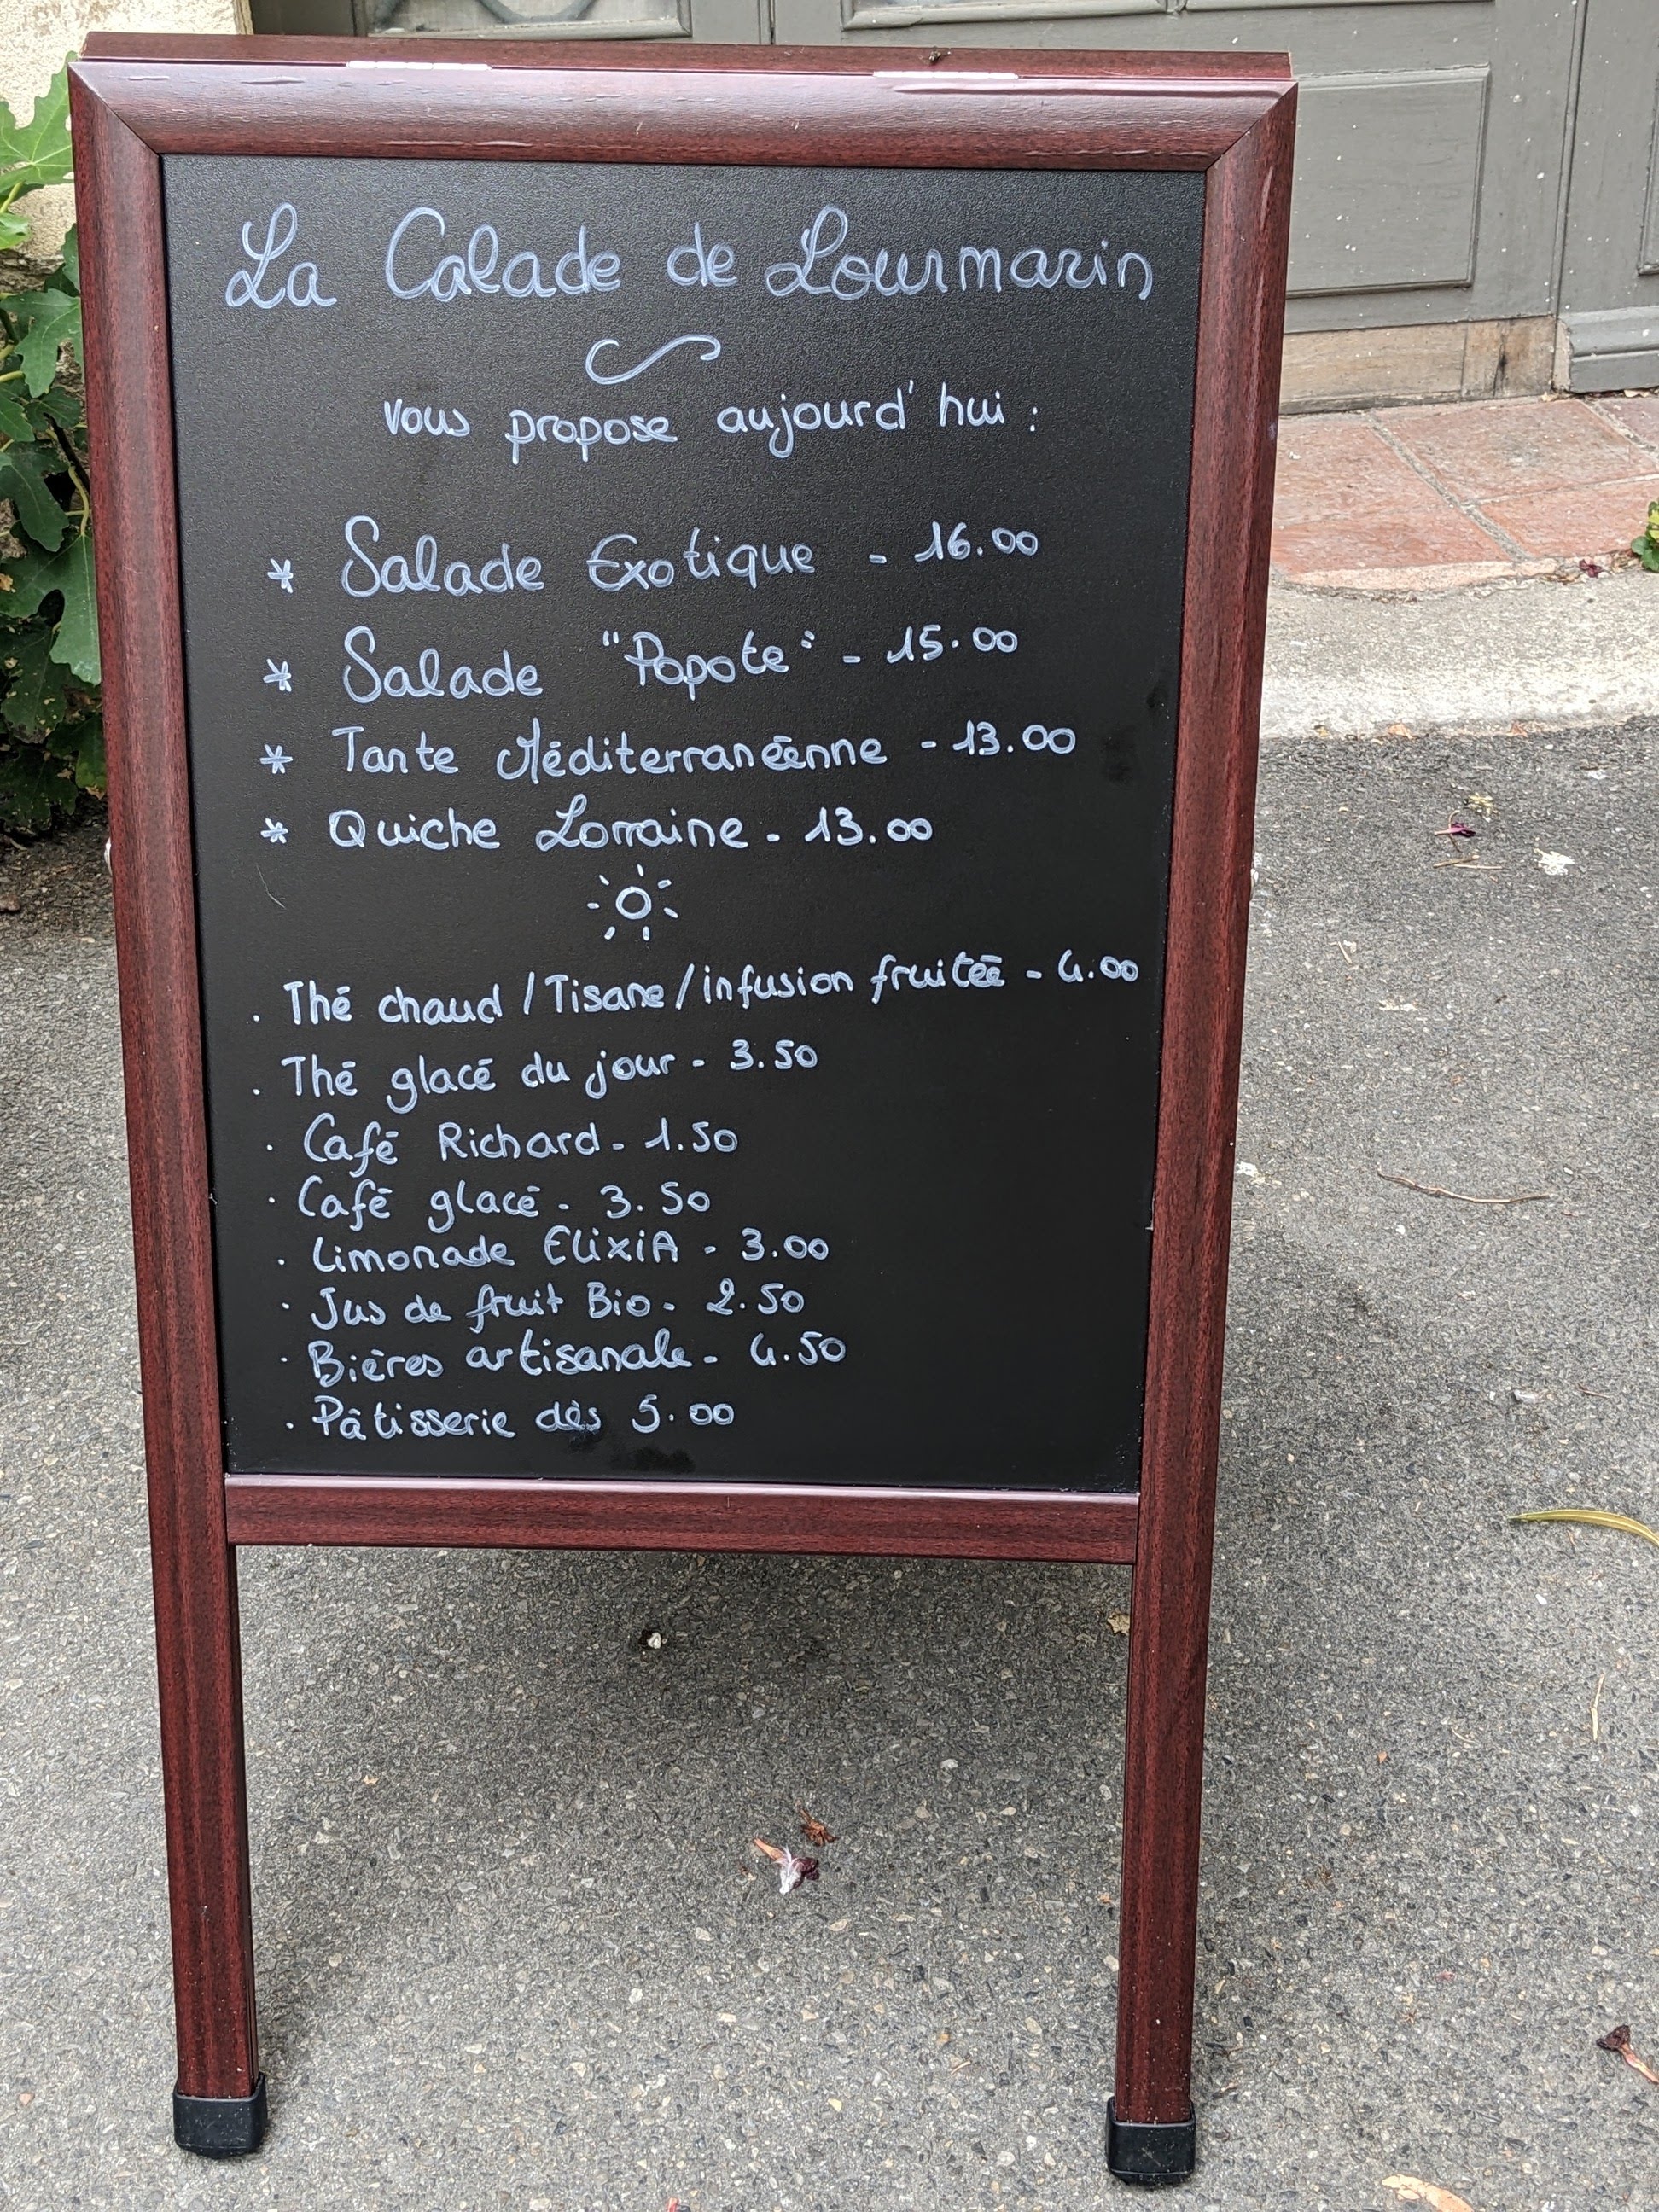 La Calade de Lourmarin
vous propose aujourd'hui :
* Salade Exotique - 16.00
* Salade "Popote" - 15.00
* Tarte Méditerranéenne - 13.00
* Quiche Lorraine - 13.00
. Thé chaud / Tisane / infusion fruitée - 4.00
. Thé glacé du jour - 3.50
. Café Richard - 1.50
. Café glacé - 3.50
. Limonade ElixiA - 3.00
. Jus de fruit Bio - 2.50
. Bières artisanale - 4.50
. Pâtisserie dès 5.00